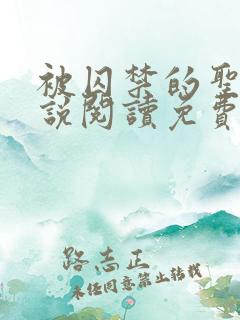 被囚禁的聖
說閱讀免費
路志正
未任同意第止结载